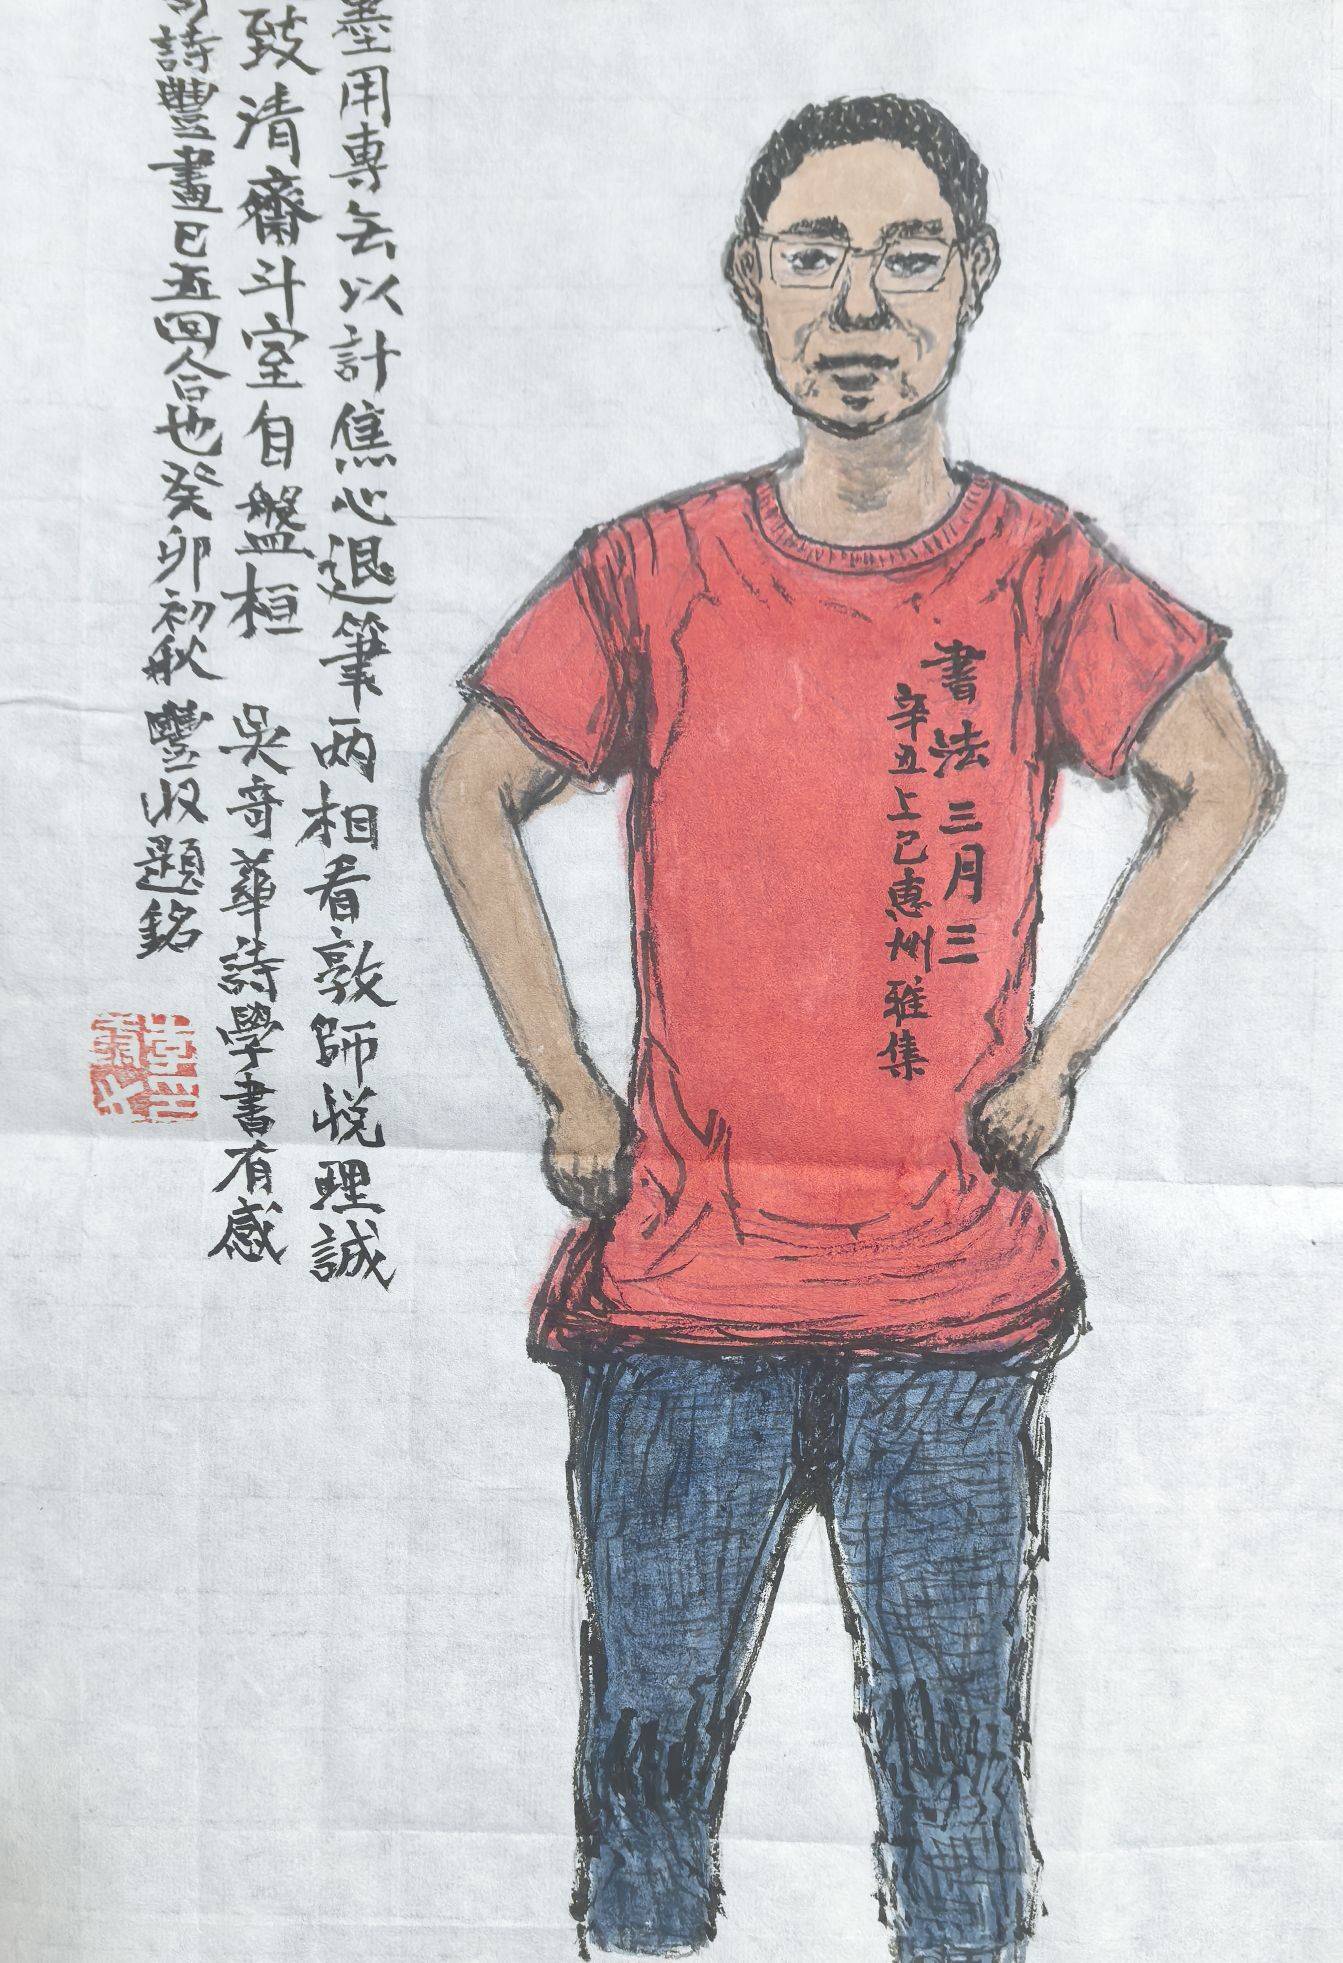 墨用專無以計焦心退筆兩相看敦師悅理誠
致清齋斗室自盤桓 吳奇華詩學書有感
詩豐畫已五回合也癸卯初秋豐收題銘
書法三月三
辛丑上巳惠州雅集